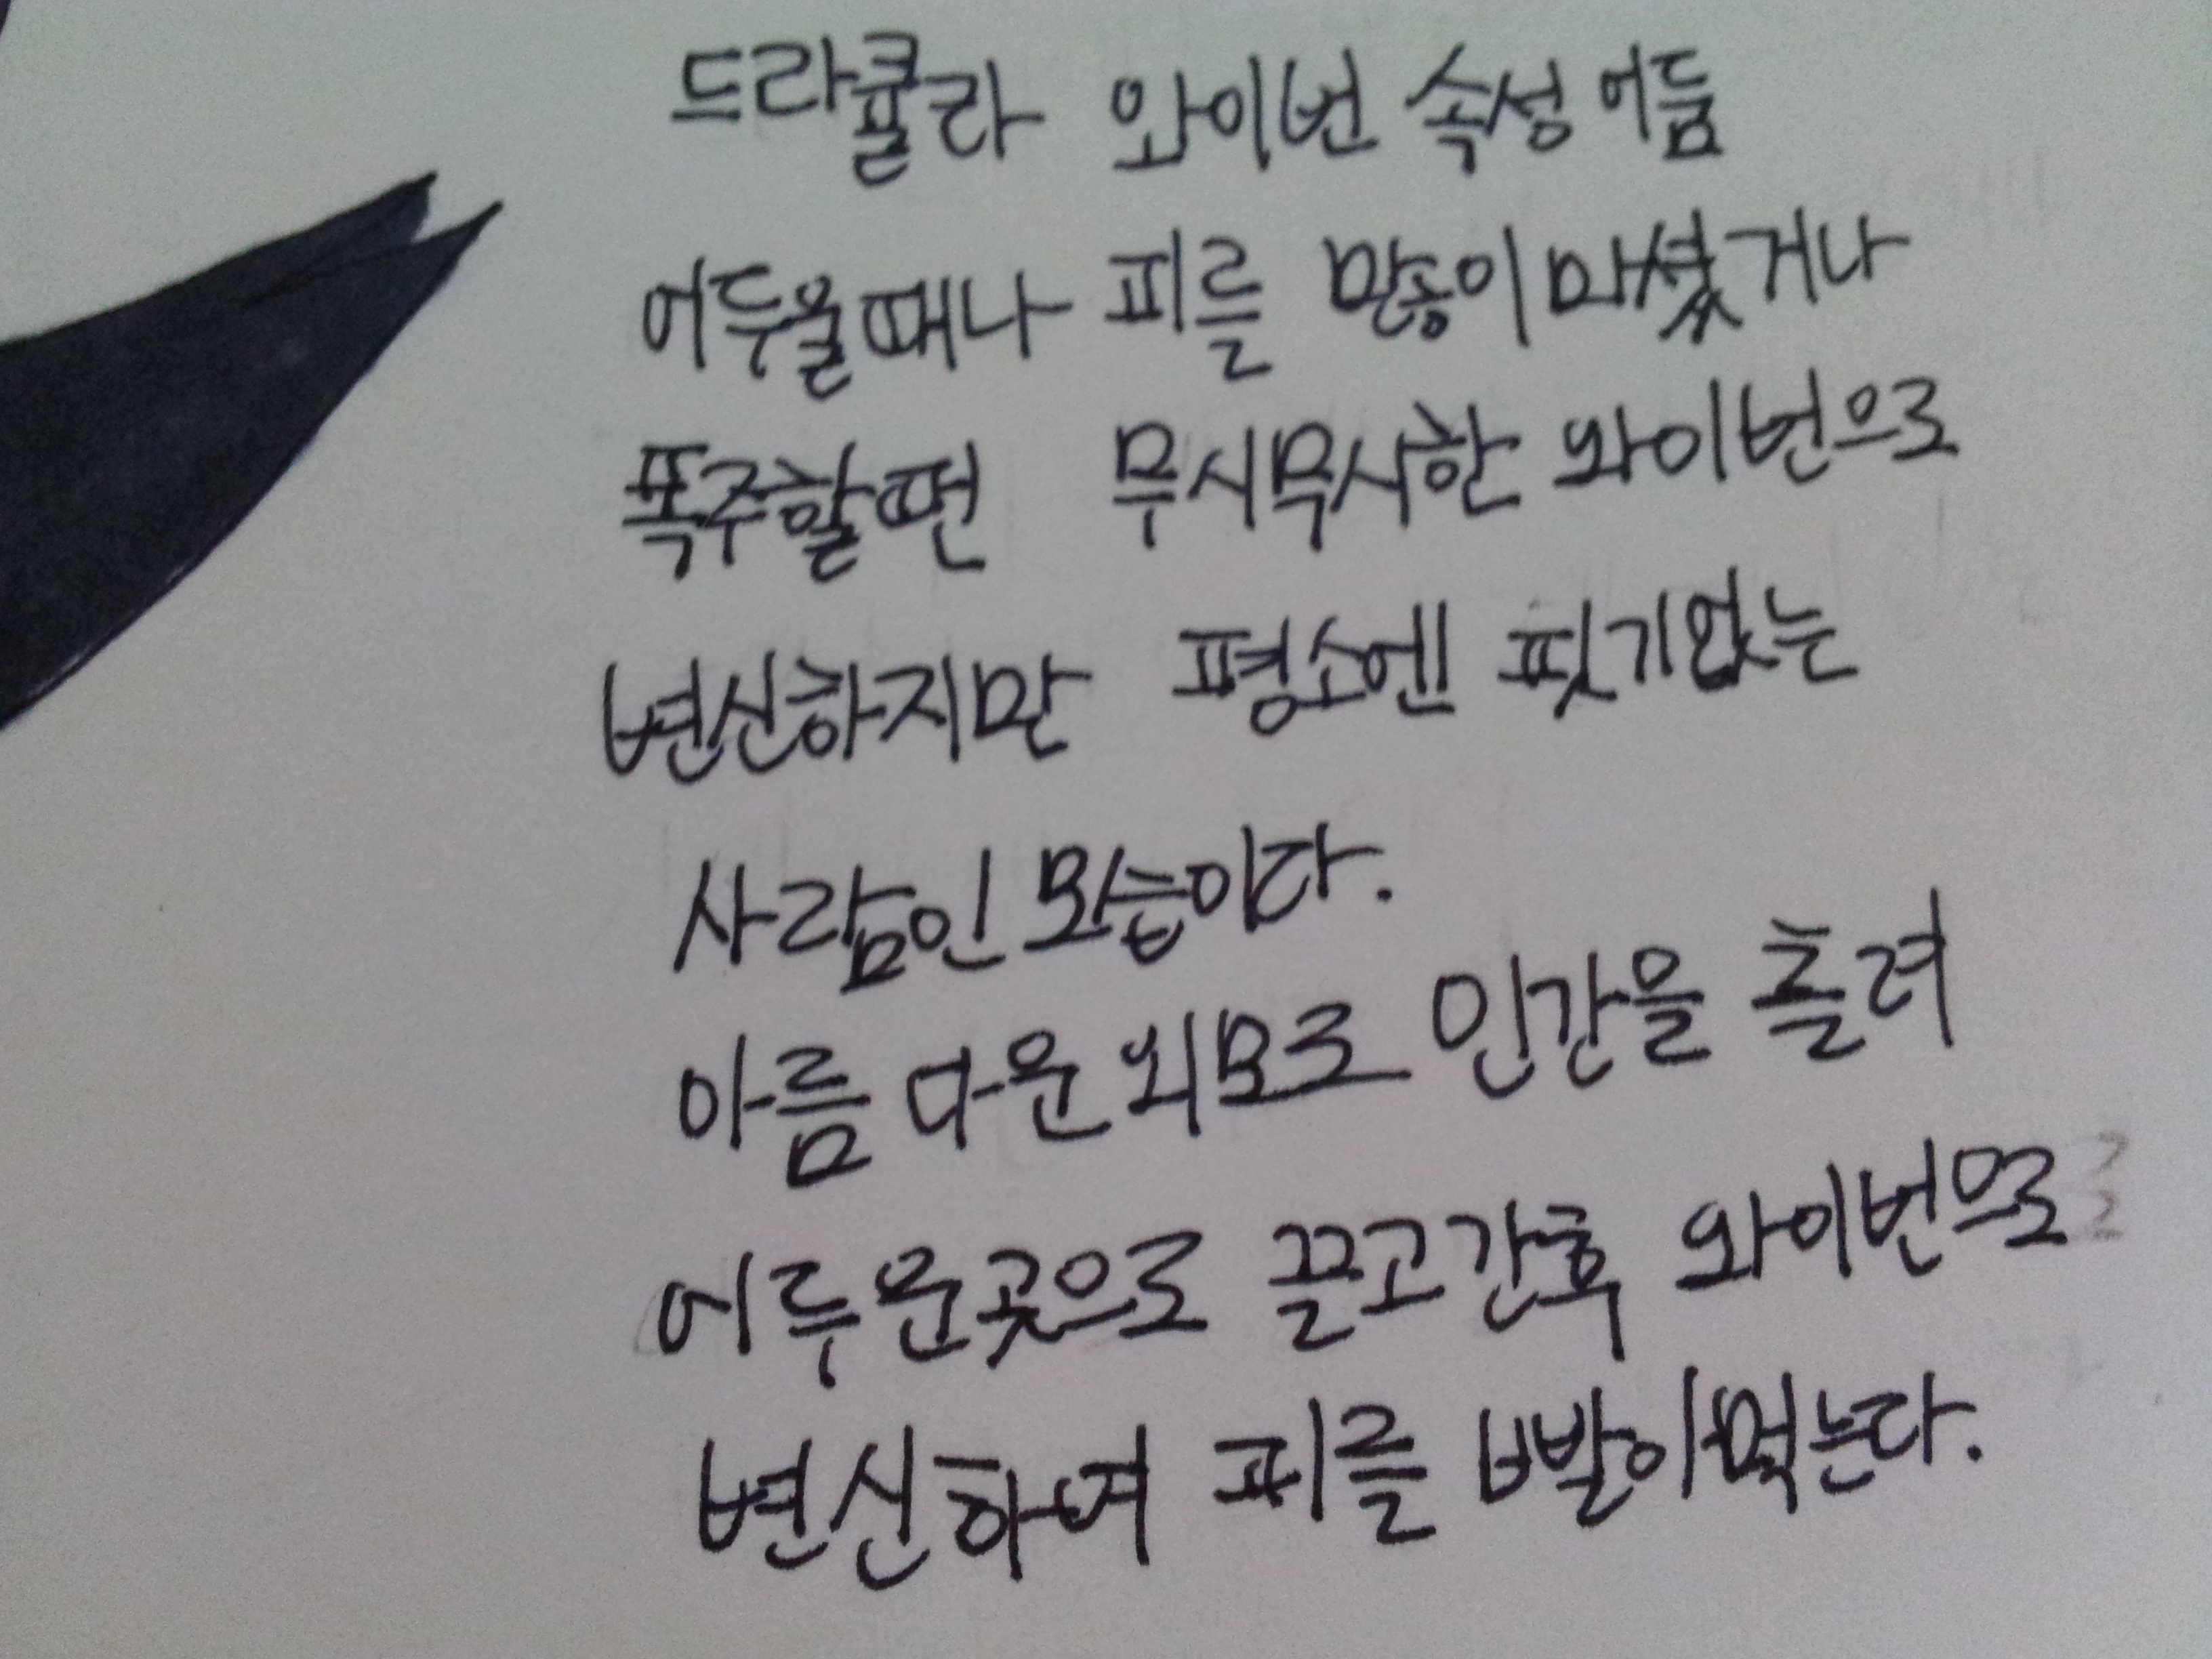 드라큘라 와이번 속성 어둠
어두울때나 피를 많이 마셨거나
폭주할땐 무시무시한 와이번으로
변신하지만 평소엔 핏기없는
사람인 모습이다.
아름다운 외모로 인간을 홀려
어두운곳으로 끌고간후 와이번으로
변신하여 피를 빨아먹는다.